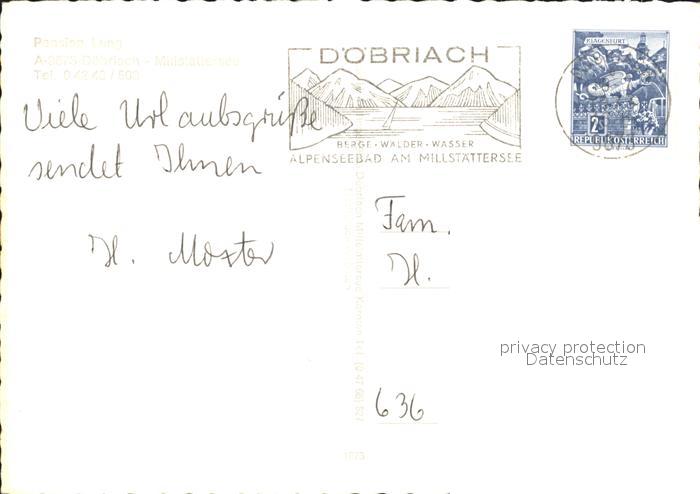 Pension Lung
A-9873 Döbriach - Millstättersee
Tel. 0 42 46 /
DÖBRIACH
BERGE · WÄLDER · WASSER
ALPENSEEBAD AM MILLSTÄTTERSEE
KLAGENFURT
2S
REPUBLIK ÖSTERREICH
9873
Viele Urlaubsgrüße
sendet Ihnen
H. Moxter
Fam.
H.
636
privacy protection
Datenschutz